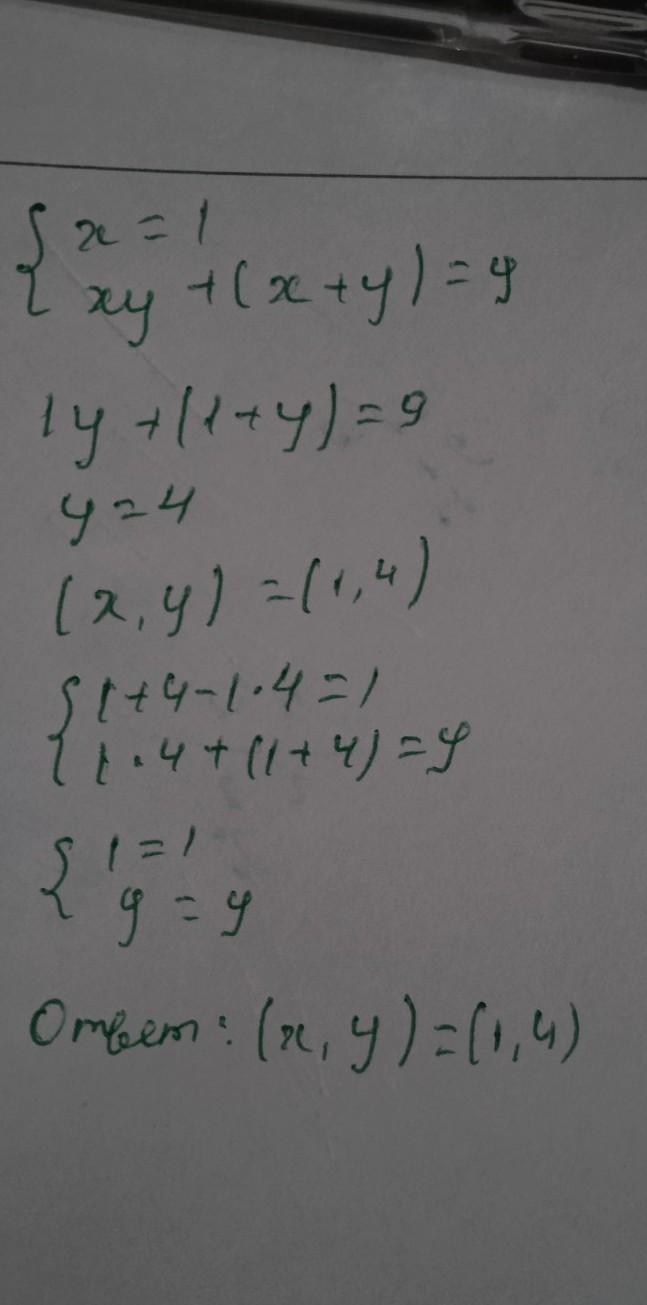 { x = 1
xy + (x + y) = 9
1y + (1 + y) = 9
y = 4
(x, y) = (1, 4)
{ 1 + 4 - 1 · 4 = 1
1 · 4 + (1 + 4) = 9
{ 1 = 1
9 = 9
Ответ: (x, y) = (1, 4)